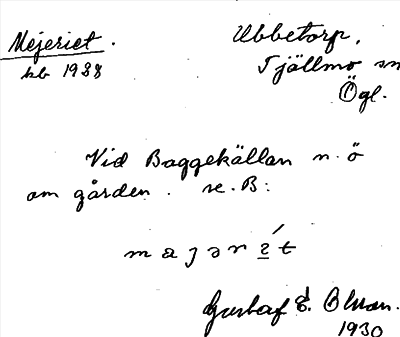 Mejeriet.
kb 1988
Ubbetorp,
Tjällmo sn
Ögl.
Vid Baggekällan n. ö
om gården. se. B:
m a j ə r é̱ t
Gustaf E. Olson.
1930